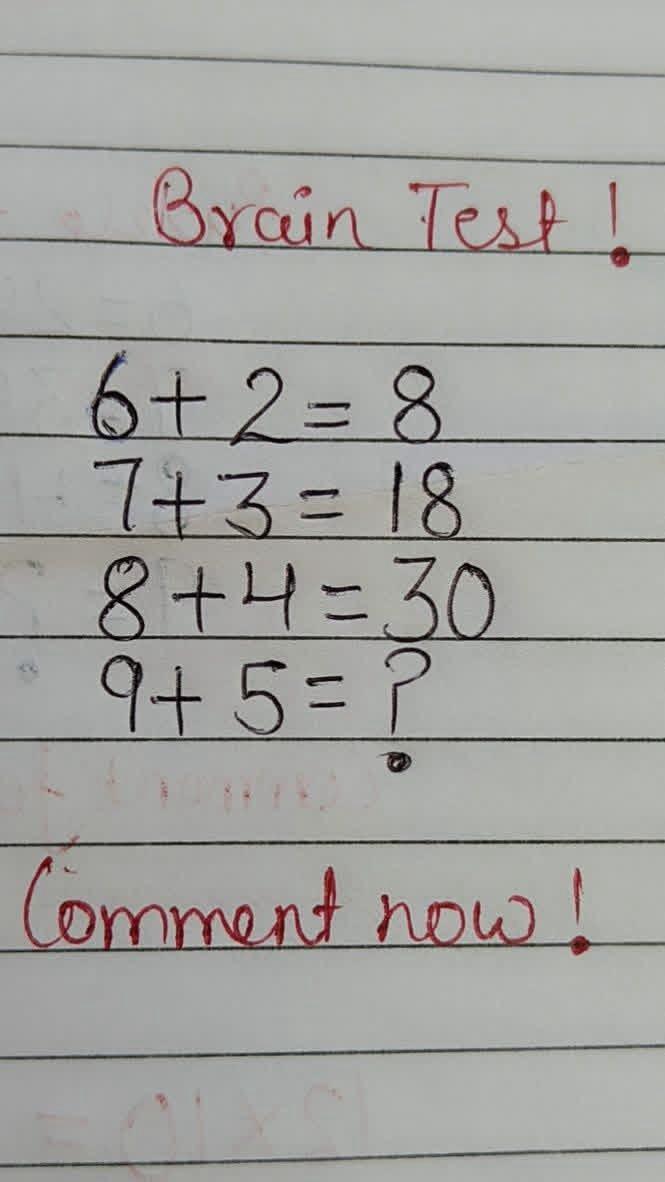 Brain Test !
6+2=8
7+3=18
8+4=30
9+5=?
Comment now!